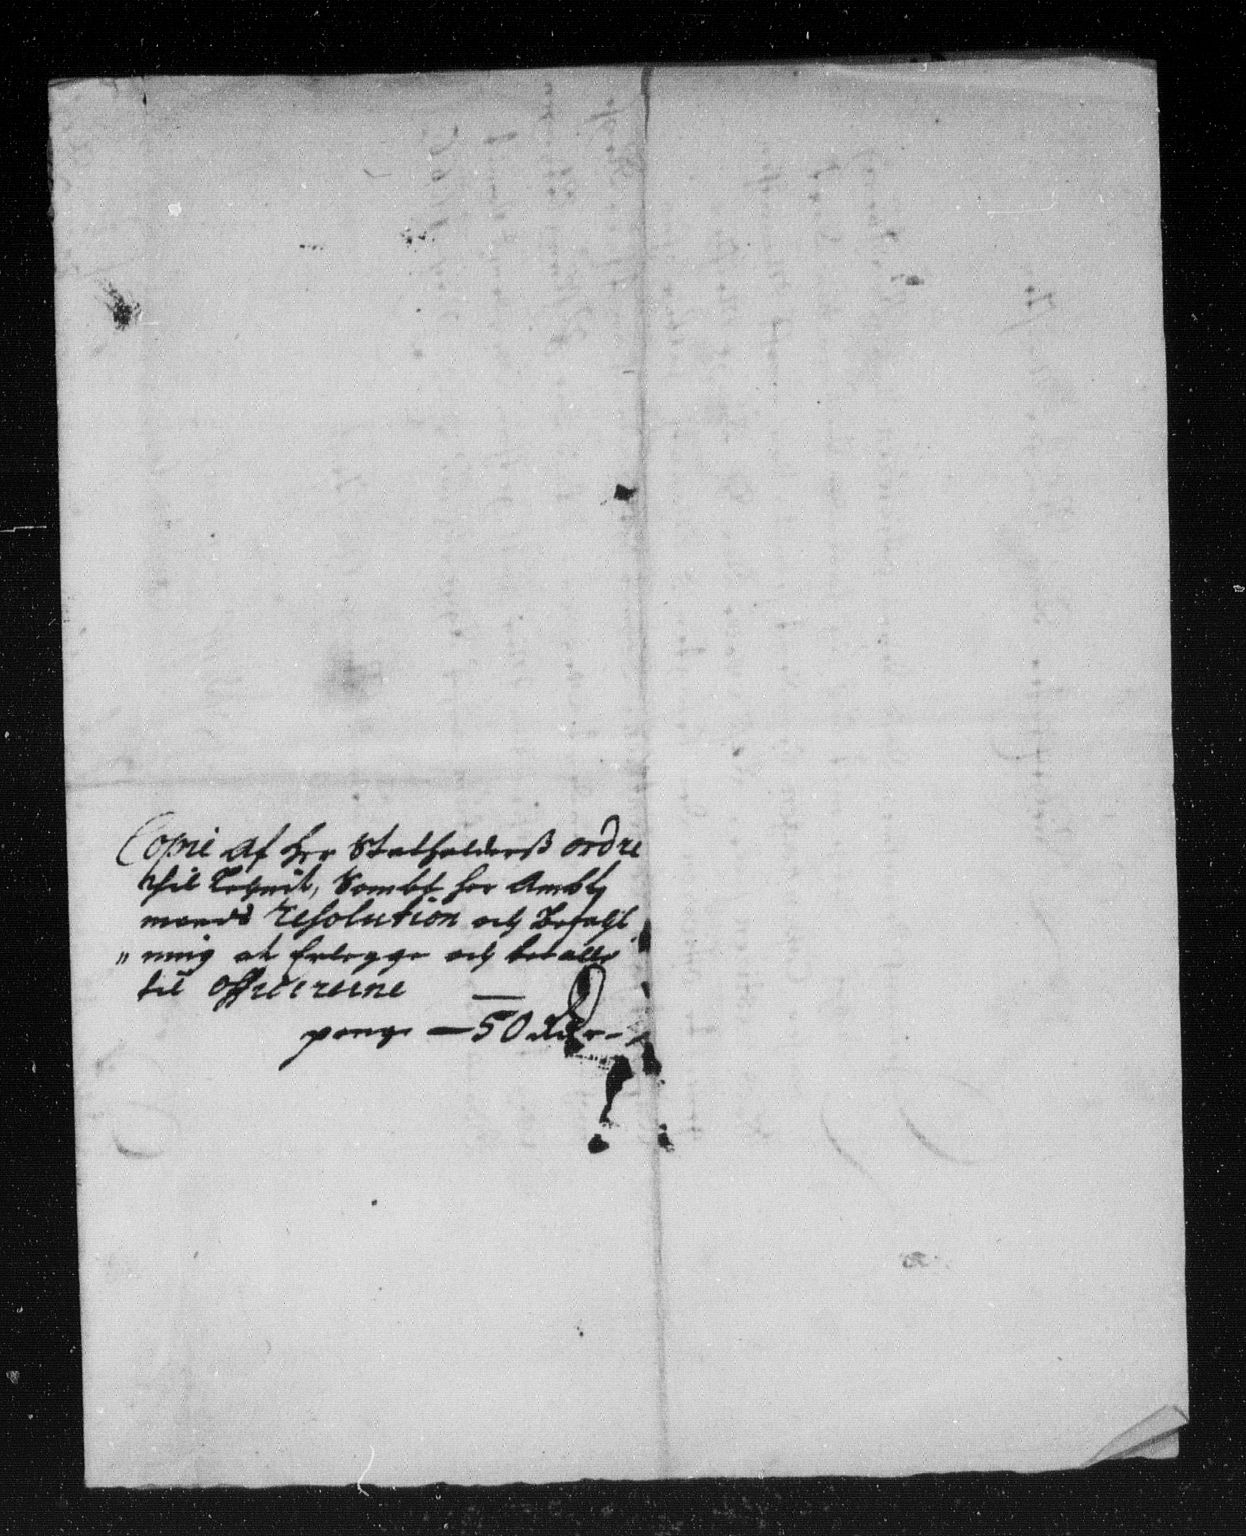 Copie af her Statholderß ordre
thil Tolnit, Sambt her Ambt
mands resolution och Befahl
" ning at Erlegge och betalle
til officererne
penge — 50 Rdr